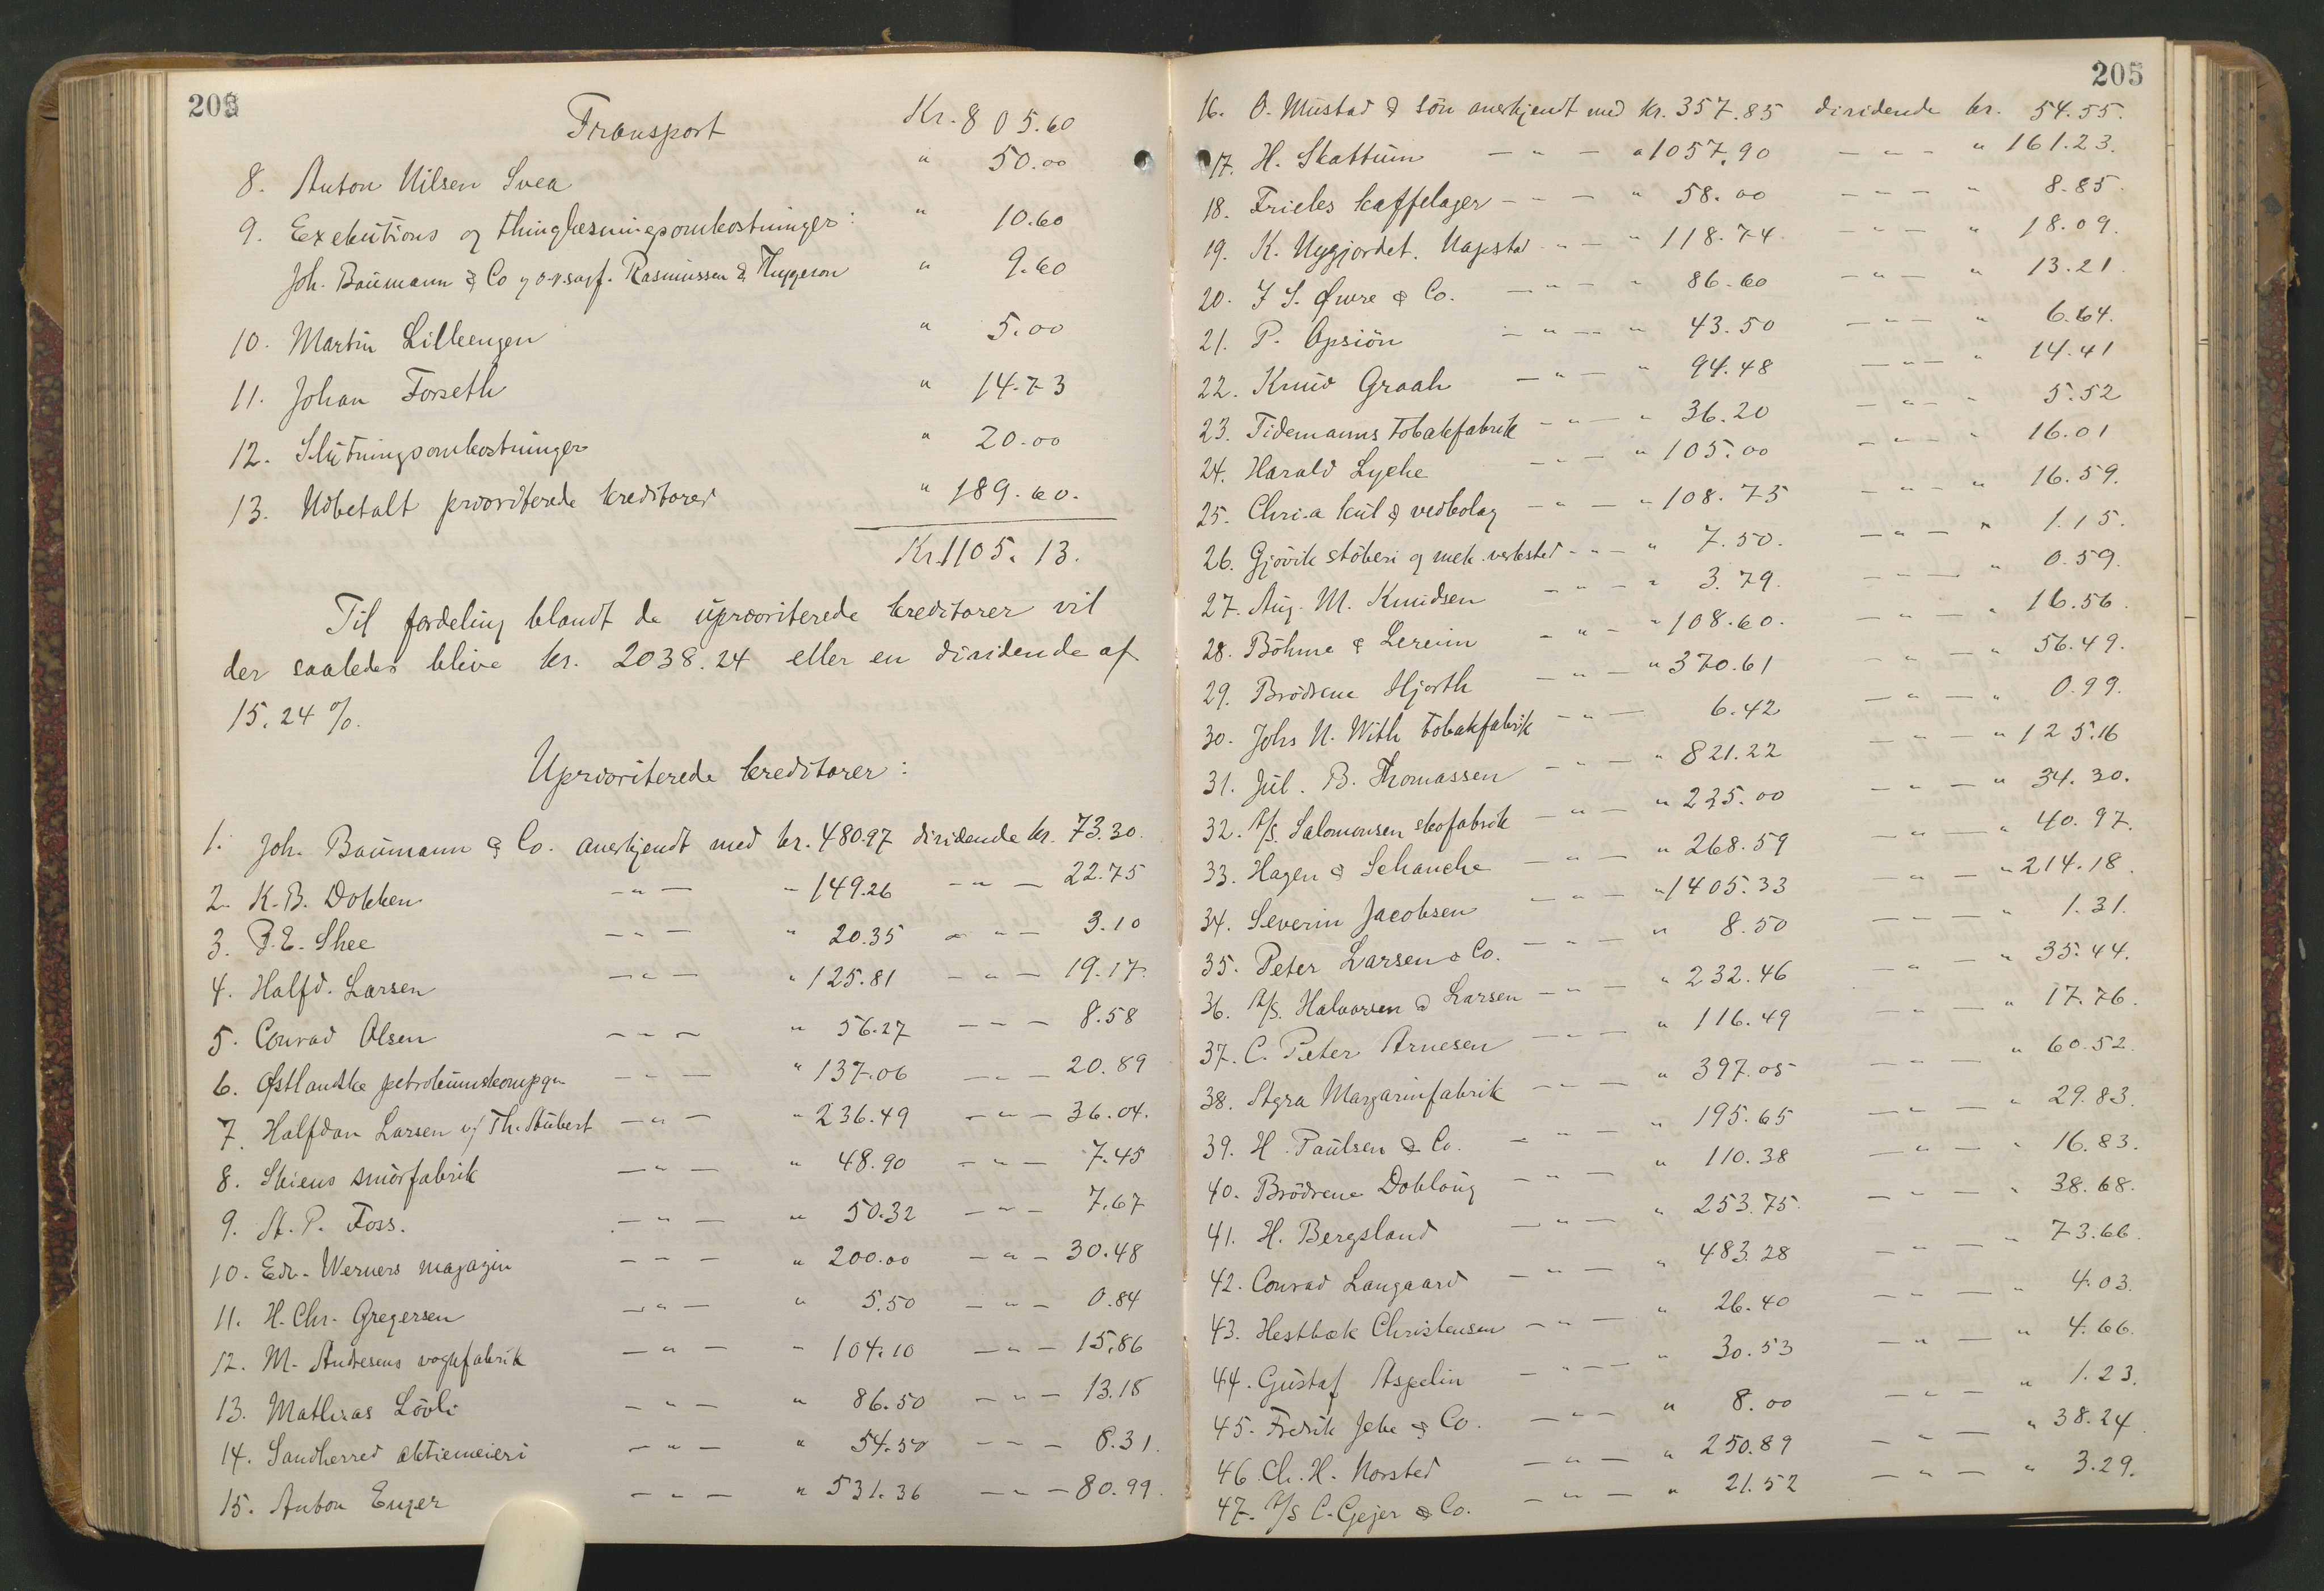 Transport Kr. 805.60
8. Anton Nilsen Svea " 50.00
9. Exekutions og thinglæsningsomkostninger: " 10.60
Joh. Baumann & Co og o.r.sagf. Rasmussen & Thygeson " 9.60
10. Martin Lilleengen " 5.00
11. Johan Forseth " 14.73
12. Slutningsomkostninger " 20.00
13. Udbetalt prioriterede kreditorer " 189.60.
Kr. 1105.13.
Til fordeling blandt de uprioriterede kreditorer vil
der saaledes blive kr. 2038.24 eller en dividende af
15.24 %.
Uprioriterede kreditorer:
1. Joh. Baumann & Co. anerkjendt med kr. 480.97 dividende kr. 73.30.
2. K. B. Dokken — " — " 149.26 — " — 22.75
3. P. E. Shee — " — " 20.35 — " — 3.10
4. Halfd. Larsen — " — " 125.81 — " — 19.17.
5. Conrad Olsen — " — " 56.27 — " — 8.58
6. Østlandske petroleumskompgn — " — " 137.06 — " — 20.89
7. Halfdan Larsen v/ Th. Stubert — " — " 236.49 — " — 36.04.
8. Skiens smørfabrik — " — " 48.90 — " — 7.45
9. A. P. Foss. — " — " 50.32 — " — 7.67
10. Edv. Werners magazin — " — " 200.00 — " — 30.48
11. H. Chr. Gregersen — " — " 5.50 — " — 0.84
12. M. Andresens vognfabrik — " — " 104.10 — " — 15.86
13. Mathias Lövli — " — " 86.50 — " — 13.18
14. Sandherred aktiemeieri — " — " 54.50 — " — 8.31.
15. Anton Enger — " — " 531.36 — " — 80.99.
205
16. O. Mustad & Sön anerkjendt med kr. 357.85 dividende kr. 54.55.
17. H. Skattum — " — " 1057.90 — " — " 161.23.
18. Frieles kaffelager — " — " 58.00 — " — " 8.85
19. K. Nygjordet. Nagstad — " — " 118.74 — " — " 18.09.
20. I. S. Øwre & Co. — " — " 86.60 — " — " 13.21
21. P. Opsiön — " — " 43.50 — " — " 6.64.
22. Knud Graah — " — " 94.48 — " — " 14.41
23. Tidemanns Tobakfabrik — " — " 36.20 — " — " 5.52
24. Harald Lyche — " — " 105.00 — " — " 16.01
25. Chr.a kul & vedbolag — " — " 108.75 — " — " 16.59.
26. Gjövik stöberi og mek. verksted — " — " 7.50. — " — " 1.15.
27. Aug. M. Knudsen — " — " 3.79. — " — " 0.59.
28. Böhme & Lereim — " — " 108.60. — " — " 16.56.
29. Brödrene Hjorth — " — " 370.61 — " — " 56.49.
30. Johs N. With tobakfabrik — " — 6.42 — " — " 0.99.
31. Jul. B. Thomassen — " — " 821.22 — " — " 125.16
32. A/S. Salomonsen skofabrik — " — " 225.00 — " — " 34.30.
33. Hagen & Schanche — " — " 268.59 — " — " 40.97.
34. Severin Jacobsen — " — " 1405.33 — " — " 214.18.
35. Peter Larsen & Co. — " — " 8.50 — " — " 1.31.
36. A/S. Halvorsen & Larsen — " — " 232.46 — " — " 35.44.
37. C. Peter Arnesen — " — " 116.49 — " — " 17.76.
38. Agra Margarinfabrik — " — " 397.05 — " — " 60.52.
39. H. Paulsen & Co. — " — " 195.65 — " — " 29.83.
40. Brödrene Dobloug — " — " 110.38 — " — " 16.83.
41. H. Bergsland — " — " 253.75. — " — " 38.68.
42. Conrad Langaard — " — " 483.28 — " — " 73.66.
43. Hestbæk Christensen — " — " 26.40 — " — " 4.03.
44. Gustaf Aspelin — " — " 30.53 — " — " 4.66.
45. Fredrik Jebe & Co. — " — " 8.00 — " — " 1.23.
46. Ch. H. Norsted — " — " 250.89 — " — " 38.24.
47. A/S C. Gejer & Co. — " — " 21.52 — " — " 3.29.